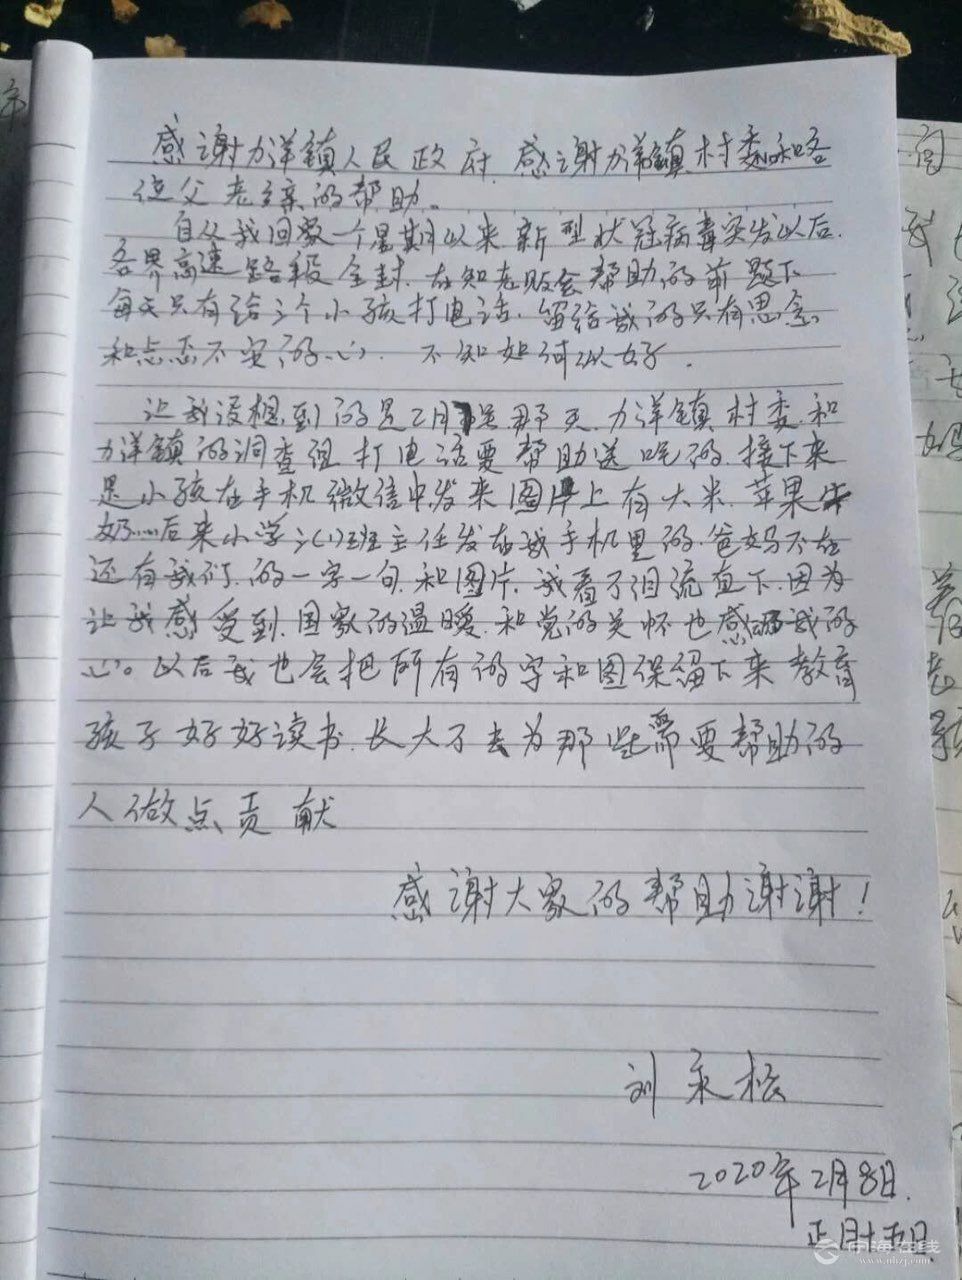 感谢力洋镇人民政府.感谢力洋镇村委和各
位父老乡亲的帮助。
自从我回家一个星期以来新型状冠病毒突发以后.
各界高速路段全封.在知老取会帮助的前题下
每天只有给三个小孩打电话.留给我的只有思念
和忐忑不安的心. 不知如何以好.
让我没想到的是2月 那天.力洋镇村委.和
力洋镇的调查组.打电话要帮助送吃的.接下来
是小孩在手机微信中发来图片上有大米.苹果牛
奶…后来小学三(1)班班主任发在我手机里的.爸妈不在
还有我们.的一字一句.和图片.我看了泪流直下.因为
让我感受到.国家的温暖.和党的关怀也感 我的
心。以后我也会把所有的字和图保留下来教育
孩子好好读书.长大了去为那些需要帮助的
人做点贡献
感谢大家的帮助谢谢!
刘永松
2020年2月8日.
正月十五日.
宁海在线
www.nhzj.com